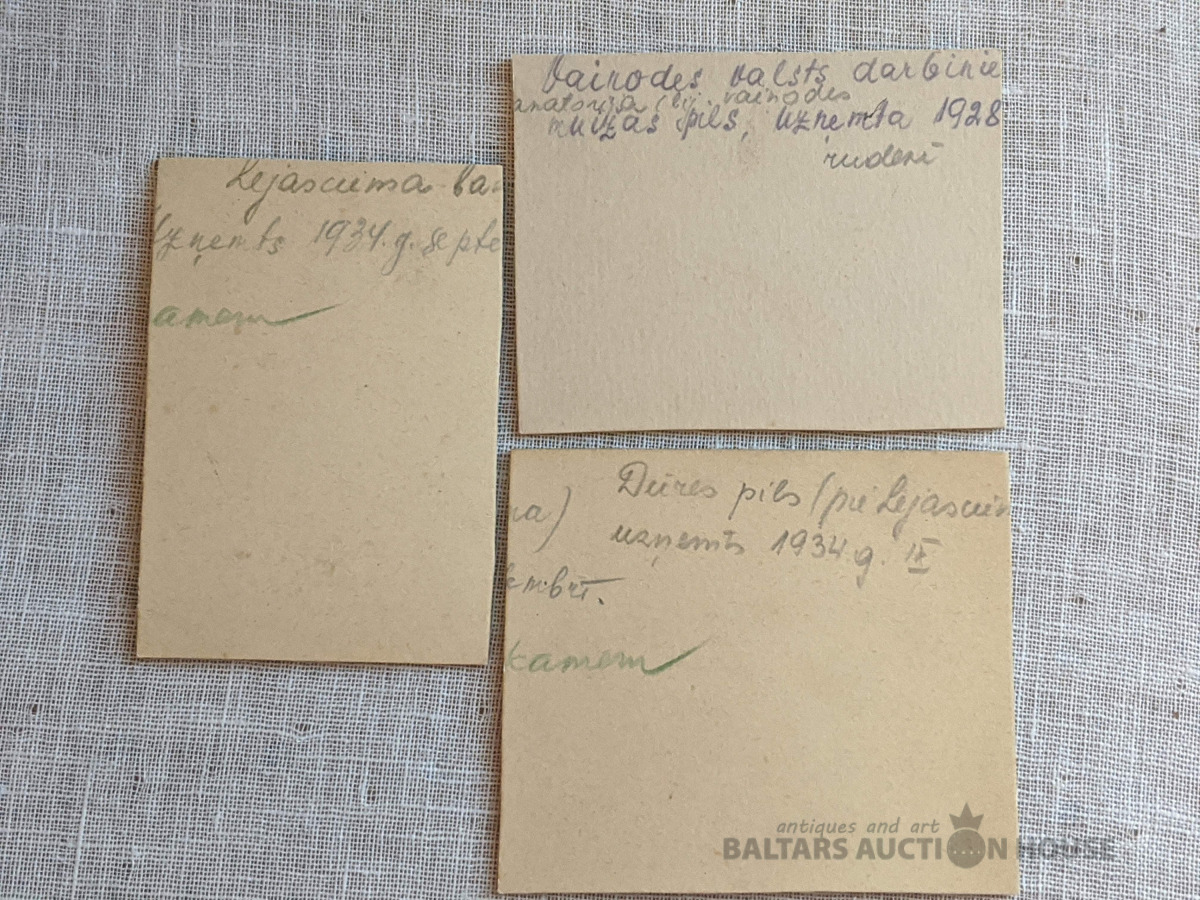 Lejasciema ba
Uzņemts 1934. g. septe
kamem
Vaiņodes valsts darbinie
anatorija (bij. vaiņodes
muižas pils, uzņemta 1928
rudenī
Dūres pils (pie Lejascien
na)
uzņemts 1934. g. IX
embrī.
kamem
antiques and art
BALTARS AUCTION HOUSE